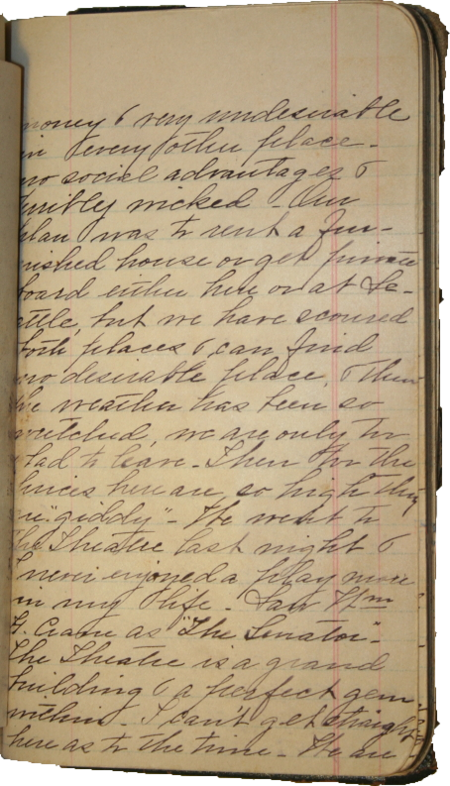 money & very undesirable
in every other place.
no social advantages &
terribly wicked. Our
plan was to rent a fur-
nished house or get private
board either here or at Se-
attle, but we have scoured
both places & can find
no desirable place, & then
the weather has been so
wretched, we are only too
glad to leave. Then for the
prices here are so high they
are "giddy" - We went to
the Theatre last night &
I never enjoyed a play more
in my life. Saw Wm
H. Crane as "The Senator".
The Theatre is a grand
building & a perfect gem
within. I can't get straight
here as to the time. We are